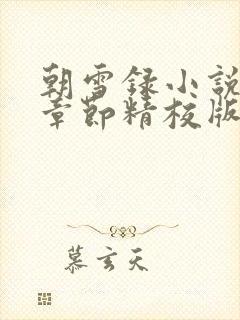 朝雪録小説
章節精校版
慕玄天